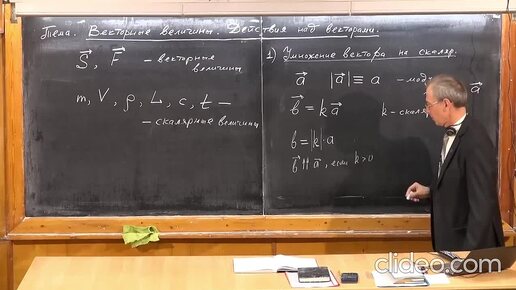 Тема. Векторные величины. Действия над векторами.
S⃗, F⃗ – векторные
величины
m, V, ρ, L, c, t –
– скалярные величины
1) Умножение вектора на скаляр.
a⃗ |a⃗| ≡ a – мод
a⃗
b⃗ = k a⃗ k – скал
b = |k|·a
b⃗ ↑↑ a⃗, если k > 0
clideo.com